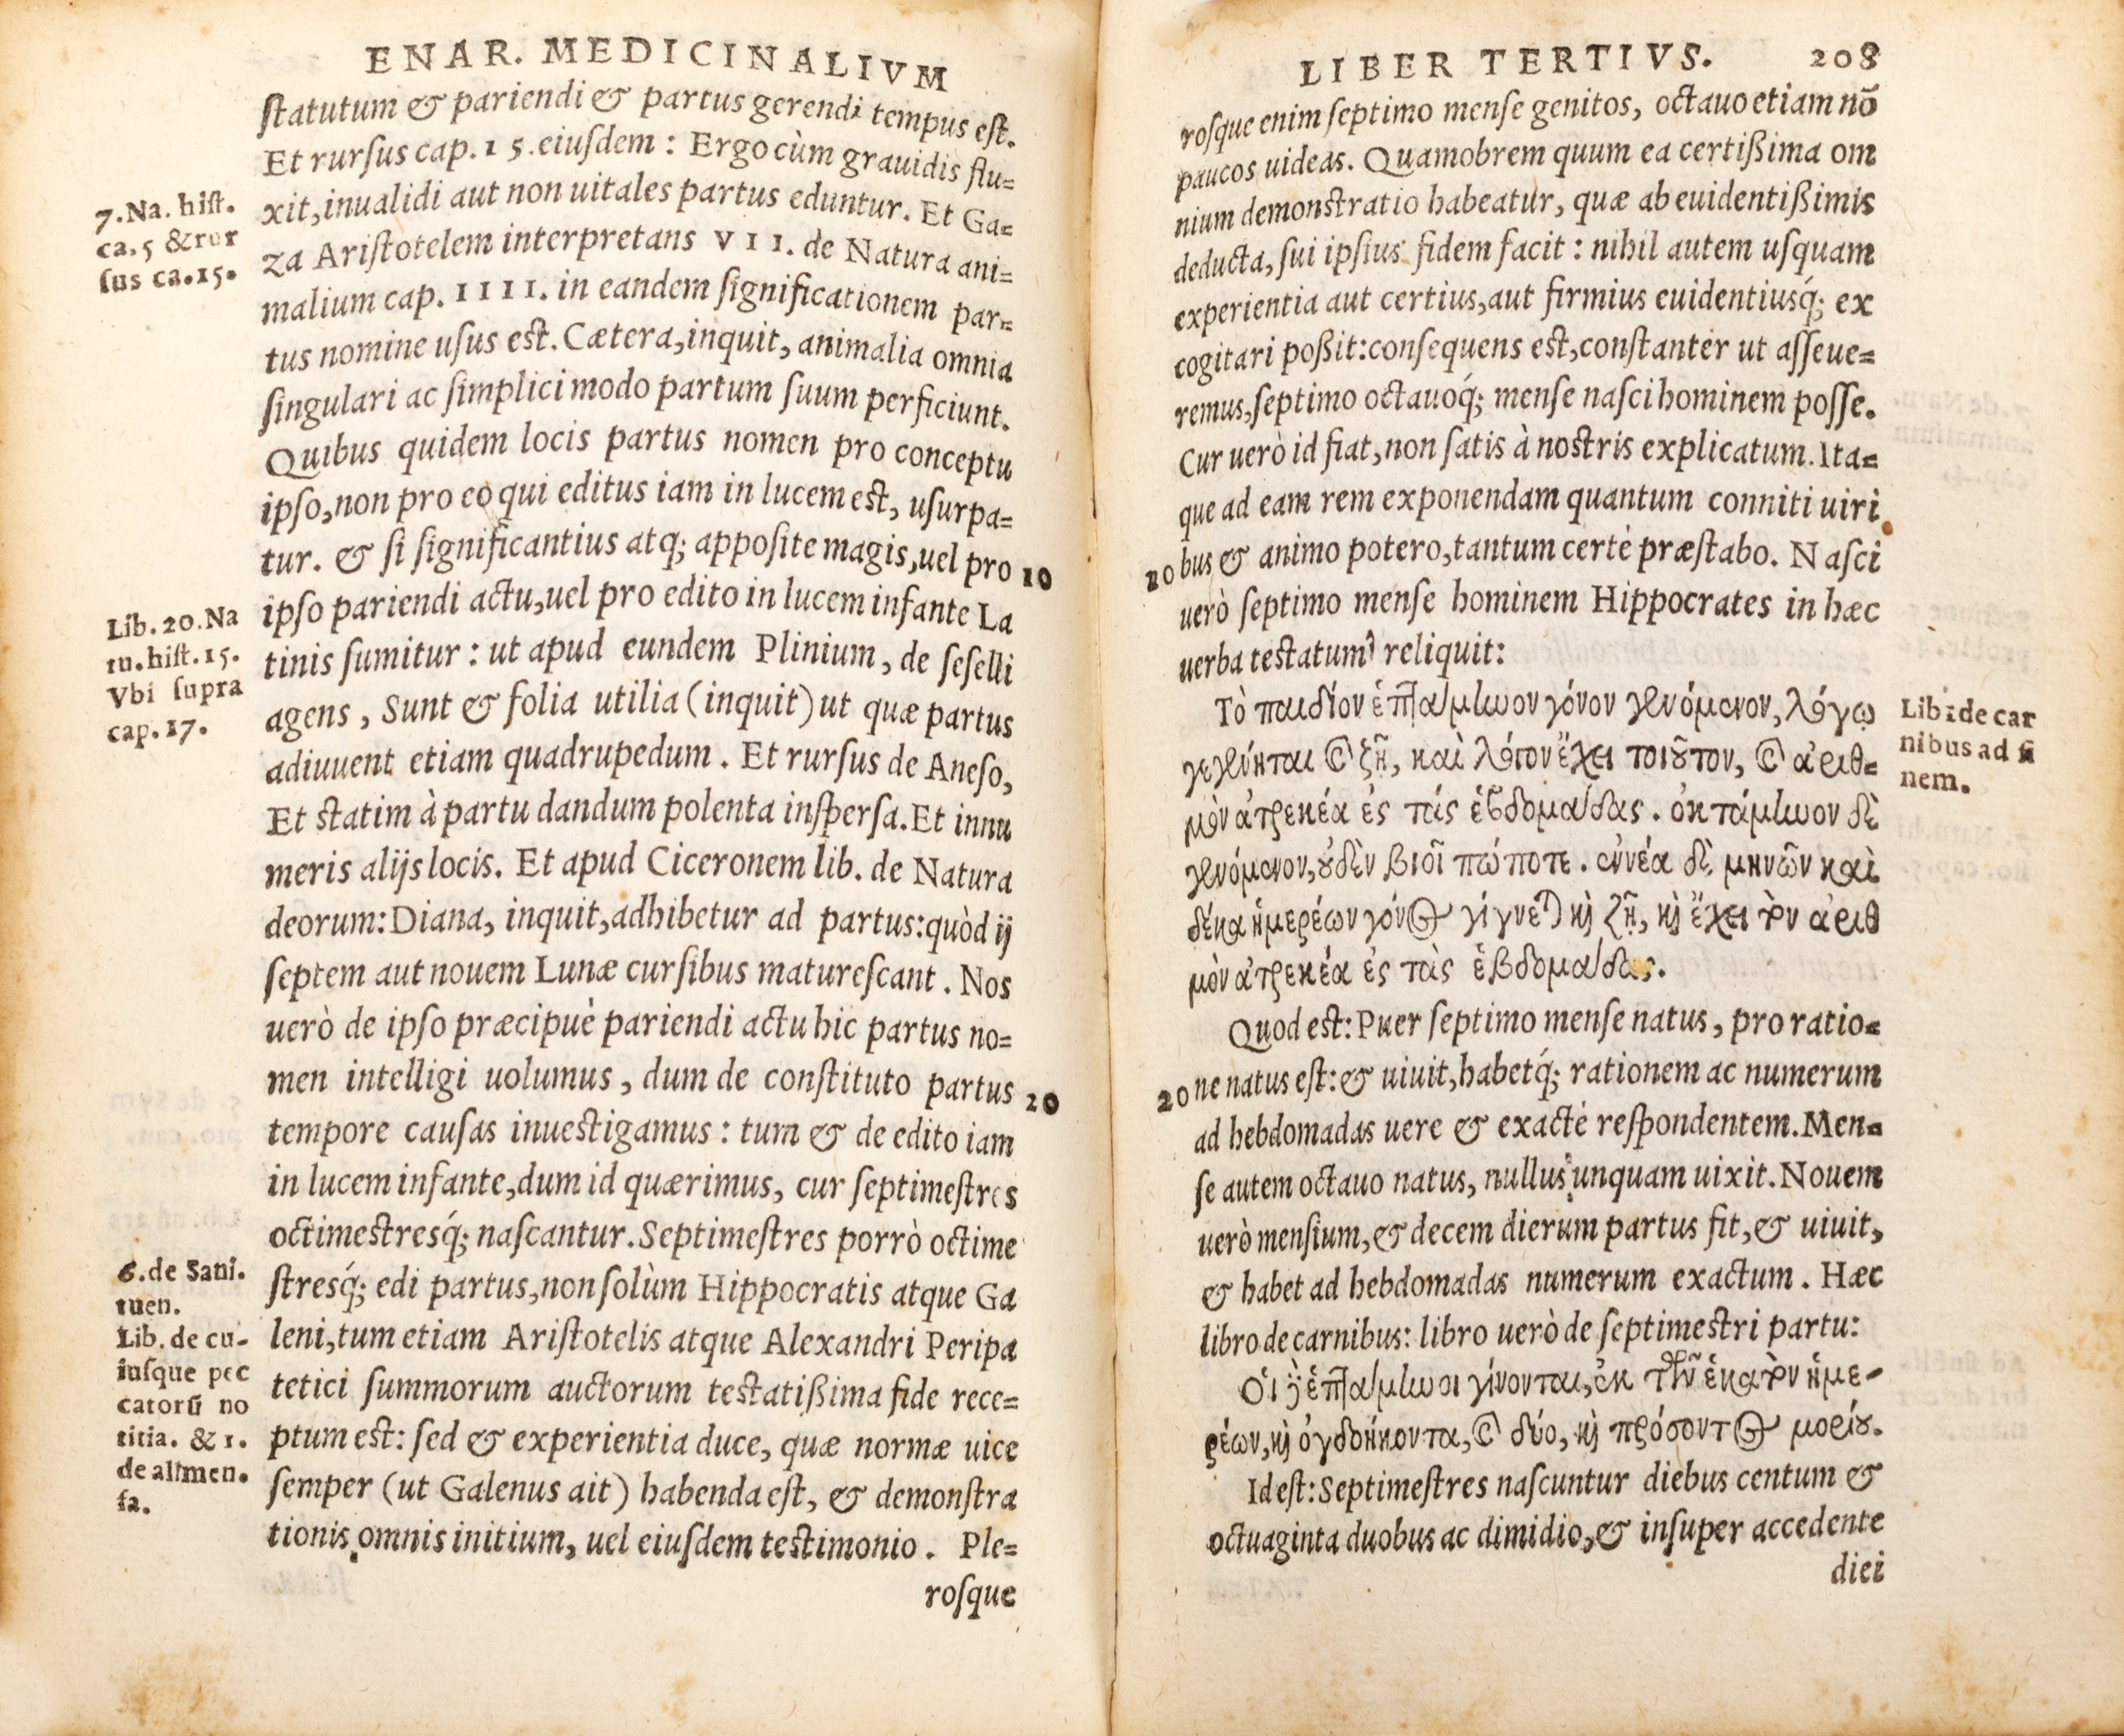 ENAR. MEDICINALIVM
ſtatutum & pariendi & partus gerendi tempus eſt.
Et rurſus cap. 15. eiuſdem : Ergo cùm grauidis flu=
xit, inualidi aut non uitales partus eduntur. Et Ga=
za Ariſtotelem interpretans VII. de Natura ani=
malium cap. IIII. in eandem ſignificationem par=
tus nomine uſus eſt. Cætera, inquit, animalia omnia
ſingulari ac ſimplici modo partum ſuum perficiunt.
Quibus quidem locis partus nomen pro conceptu
ipſo, non pro eo qui editus iam in lucem eſt, uſurpa=
tur. & ſi ſignificantius atq; appoſite magis, uel pro 10
ipſo pariendi actu, uel pro edito in lucem infante La
tinis ſumitur : ut apud eundem Plinium, de ſeſelli
agens, Sunt & folia utilia (inquit) ut quæ partus
adiuuent etiam quadrupedum. Et rurſus de Aneſo,
Et ſtatim à partu dandum polenta inſperſa. Et innu
meris alijs locis. Et apud Ciceronem lib. de Natura
deorum: Diana, inquit, adhibetur ad partus: quòd ij
ſeptem aut nouem Lunæ curſibus matureſcant. Nos
uerò de ipſo præcipuè pariendi actu hic partus no=
men intelligi uolumus, dum de conſtituto partus 20
tempore cauſas inueſtigamus : tum & de edito iam
in lucem infante, dum id quærimus, cur ſeptimeſtres
octimeſtresq́; naſcantur. Septimeſtres porrò octime
ſtresq́; edi partus, non ſolùm Hippocratis atque Ga
leni, tum etiam Ariſtotelis atque Alexandri Peripa
tetici ſummorum auctorum teſtatißima fide rece=
ptum eſt: ſed & experientia duce, quæ normæ uice
ſemper (ut Galenus ait) habenda eſt, & demonſtra
tionis omnis initium, uel eiuſdem teſtimonio. Ple=
roſque
7. Na. hiſt.
ca. 5 & rur
ſus ca. 15.
Lib. 20. Na
tu. hiſt. 15.
Vbi ſupra
cap. 17.
6. de Sani.
tuen.
Lib. de cu-
iuſque pec
catorũ no
titia. & 1.
de alimen.
fa.
LIBER TERTIVS. 208
roſque enim ſeptimo menſe genitos, octauo etiam nõ
paucos uideas. Quamobrem quum ea certißima om
nium demonſtratio habeatur, quæ ab euidentißimis
deducta, ſui ipſius fidem facit : nihil autem uſquam
experientia aut certius, aut firmius euidentiusq́; ex
cogitari poßit: conſequens eſt, conſtanter ut aſſeue=
remus, ſeptimo octauoq́; menſe naſci hominem poſſe.
Cur uerò id fiat, non ſatis à noſtris explicatum. Ita=
que ad eam rem exponendam quantum conniti uiri
10 bus & animo potero, tantum certè præſtabo. Naſci
uerò ſeptimo menſe hominem Hippocrates in hæc
uerba teſtatum reliquit:
Τὸ παιδίον ἑπταμίωον γόνον γενόμενον, λόγῳ
γεγένηται καὶ ζῇ, καὶ λόγον ἔχει τοιοῦτον, καὶ ἀριθ=
μὸν ἀτρεκέα ἐς τάς ἑβδομάδας. ὀκτάμίωον δὲ
γενόμενον, οὐδὲν βιοῖ πώποτε. ἐννέα δὲ μηνῶν καὶ
δέκα ἡμερέων γόνος γίγνεται καὶ ζῇ, καὶ ἔχει τὸν ἀριθ
μὸν ἀτρεκέα ἐς τὰς ἑβδομάδας.
Quod eſt: Puer ſeptimo menſe natus, pro ratio=
20 ne natus eſt: & uiuit, habetq́; rationem ac numerum
ad hebdomadas uere & exactè reſpondentem. Men=
ſe autem octauo natus, nullus unquam uixit. Nouem
uerò menſium, & decem dierum partus fit, & uiuit,
& habet ad hebdomadas numerum exactum. Hæc
libro de carnibus: libro uerò de ſeptimeſtri partu:
Οἱ ἑπταμίωοι γίνονται, ἐκ τῶν ἑκατὸν ἡμε-
ρέων, καὶ ὀγδοήκοντα, καὶ δύο, καὶ πρόσοντος μορίου.
Id eſt: Septimeſtres naſcuntur diebus centum &
octuaginta duobus ac dimidio, & inſuper accedente
diei
Lib. de car
nibus ad fi
nem.